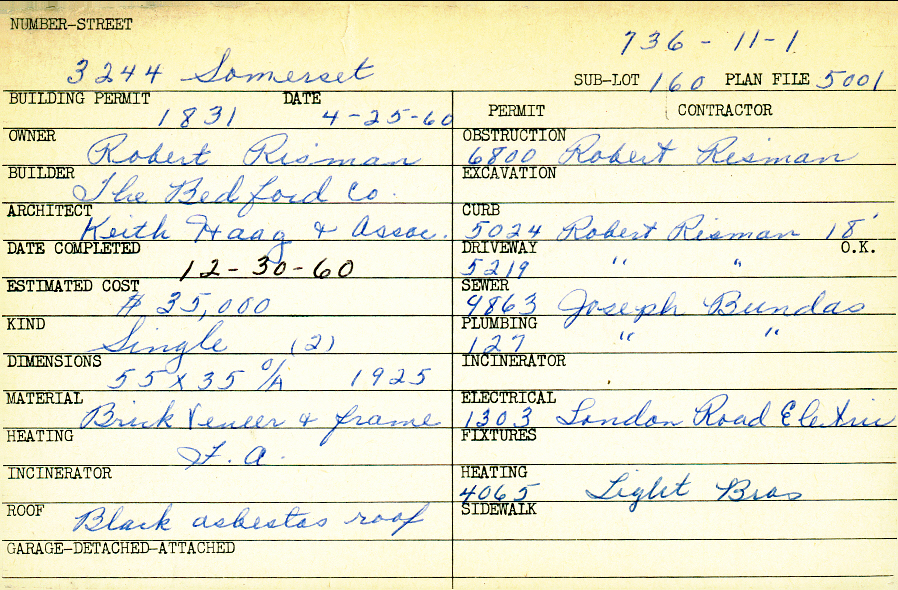 NUMBER-STREET
736-11-1
3244 Somerset
SUB-LOT 160 PLAN FILE 5001
BUILDING PERMIT DATE
1831 4-25-60
PERMIT CONTRACTOR
OWNER
Robert Risman
OBSTRUCTION
6800 Robert Risman
BUILDER
The Bedford Co.
EXCAVATION
ARCHITECT
Keith Haag & Assoc.
CURB
5024 Robert Risman 18'
DATE COMPLETED
12-30-60
DRIVEWAY O.K.
5219 " "
ESTIMATED COST
$ 35,000
SEWER
9863 Joseph Bundas
KIND
Single (2)
PLUMBING
127 " "
DIMENSIONS
55 x 35 O/A 1925
INCINERATOR
MATERIAL
Brick Veneer & frame
ELECTRICAL
1303 London Road Electric
HEATING
F.A.
FIXTURES
INCINERATOR
HEATING
4065 Light Bros
ROOF
Black asbestos roof
SIDEWALK
GARAGE-DETACHED-ATTACHED